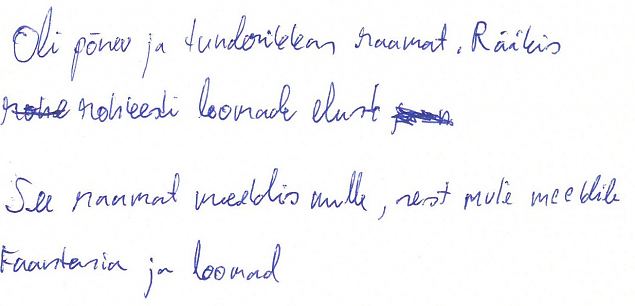 Oli põnev ja tunderikkas raamat. Rääkis
rohkesti loomade elust
See raamat meeldis mulle, sest mule meeldib
Faantasia ja loomad